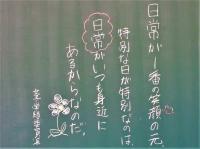 日常が一番の笑顔の元。
特別な日が特別なのは、
日常がいつも身近に
あるからなのだ。